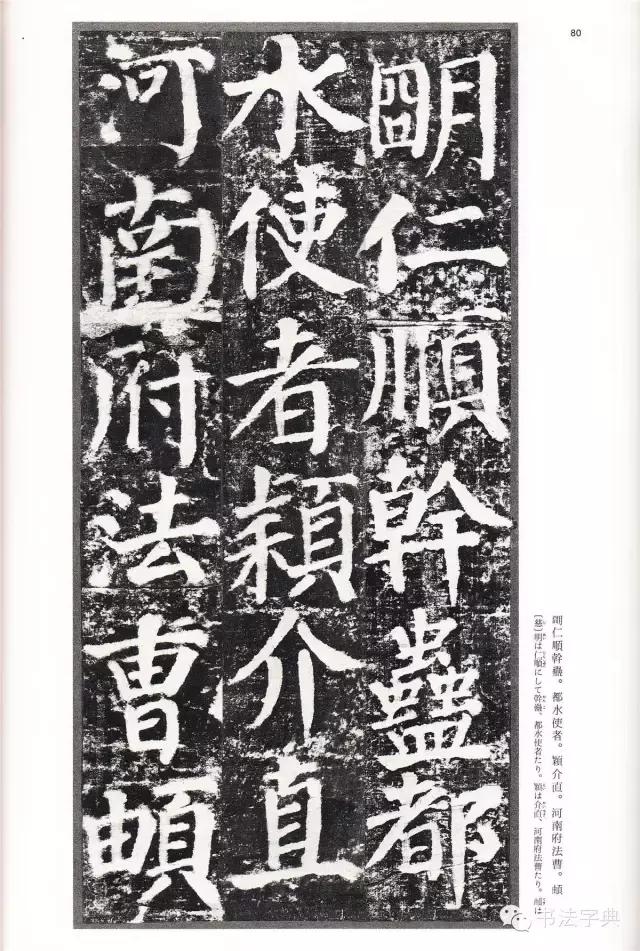 80
明仁順幹蠱都
水使者潁介直
河南府法曹頔
明仁順幹蠱。都水使者。潁介直。河南府法曹。頔
〔慈〕明は仁順にして幹蠱、都水使者たり。潁は介直、河南府法曹たり。頔は
书法字典